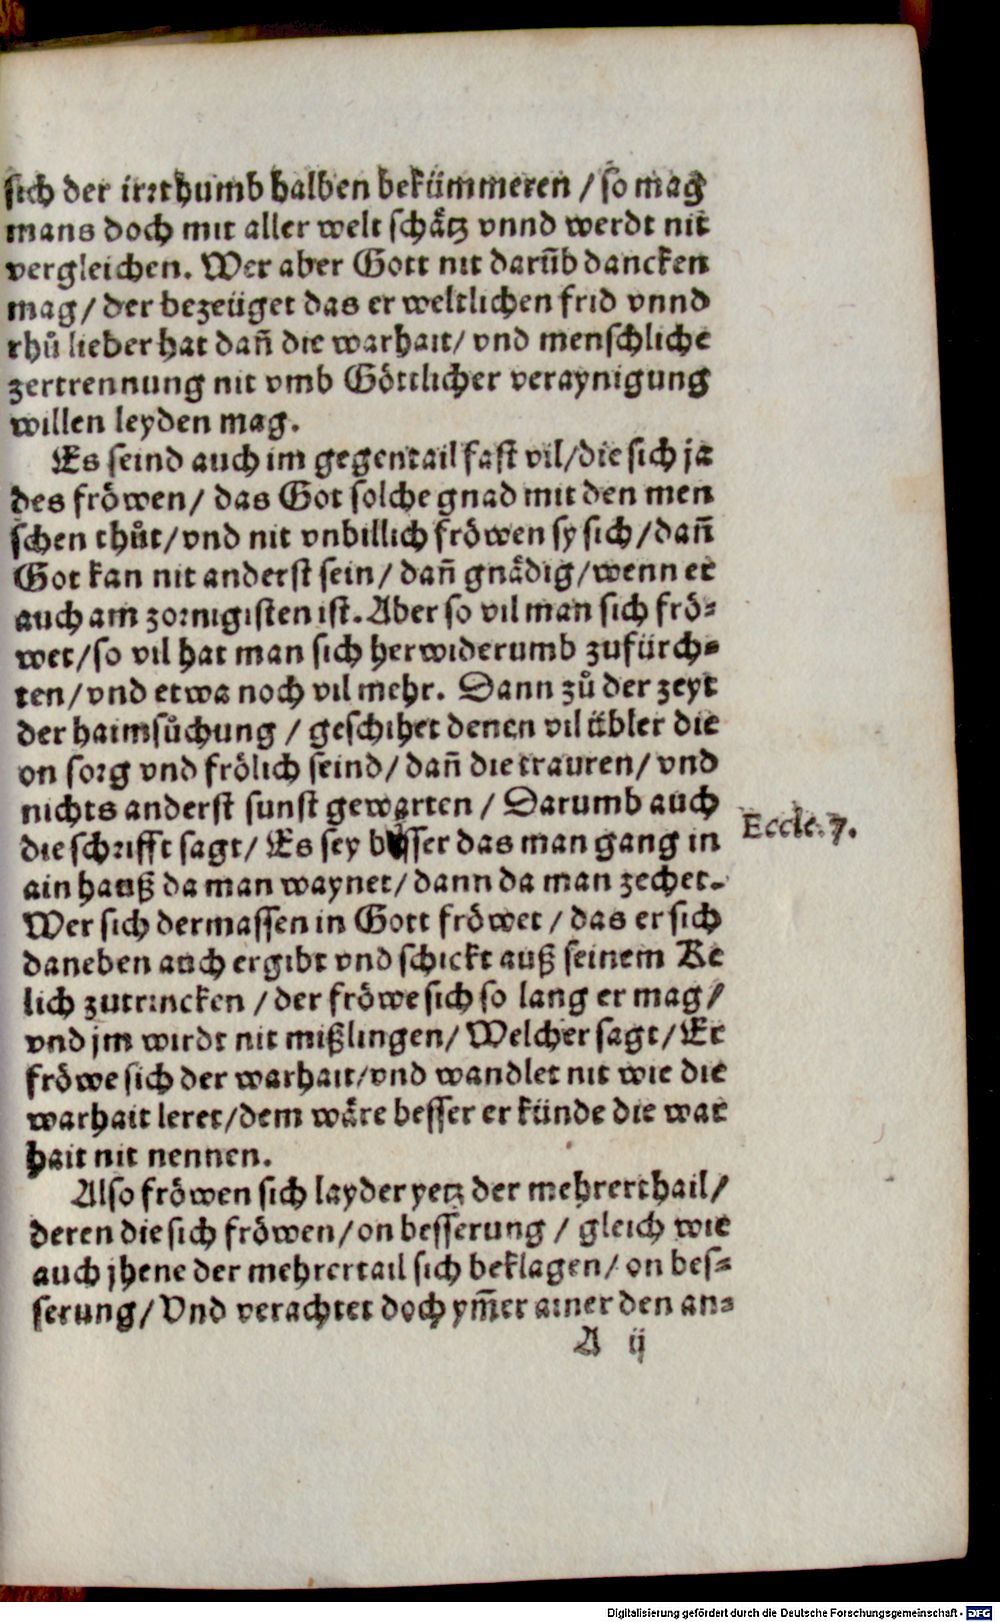 sich der irrthumb halben bekümmeren / so mag
mans doch mit aller welt schätz vnnd werdt nit
vergleichen. Wer aber Gott nit darūb dancken
mag / der bezeüget das er weltlichen frid vnnd
rhů lieber hat dañ die warhait / vnd menschliche
zertrennung nit vmb Göttlicher veraynigung
willen leyden mag.
Es seind auch im gegentail fast vil / die sich ja
des fröwen / das Got solche gnad mit den men
schen thůt / vnd nit vnbillich fröwen sy sich / dañ
Got kan nit anderst sein / dañ gnädig / wenn er
auch am zornigisten ist. Aber so vil man sich frö⸗
wet / so vil hat man sich herwiderumb zufürch⸗
ten / vnd etwa noch vil mehr. Dann zů der zeyt
der haimsůchung / geschihet denen vil übler die
on sorg vnd frölich seind / dañ die trauren / vnd
nichts anderst sunst gewarten / Darumb auch
die schrifft sagt / Es sey besser das man gang in
ain hauß da man waynet / dann da man zechet.
Eccle. 7.
Wer sich dermassen in Gott fröwet / das er sich
daneben auch ergibt vnd schickt auß seinem Ke
lich zutrincken / der fröwe sich so lang er mag /
vnd jm wirdt nit mißlingen / Welcher sagt / Er
fröwe sich der warhait / vnd wandlet nit wie die
warhait leret / dem wäre besser er künde die war
hait nit nennen.
Also fröwen sich layder yetz der mehrerthail /
deren die sich fröwen / on besserung / gleich wie
auch jhene der mehrertail sich beklagen / on bes⸗
serung / Vnd verachtet doch ym̄er ainer den an⸗
A ij
Digitalisierung gefördert durch die Deutsche Forschungsgemeinschaft - DFG